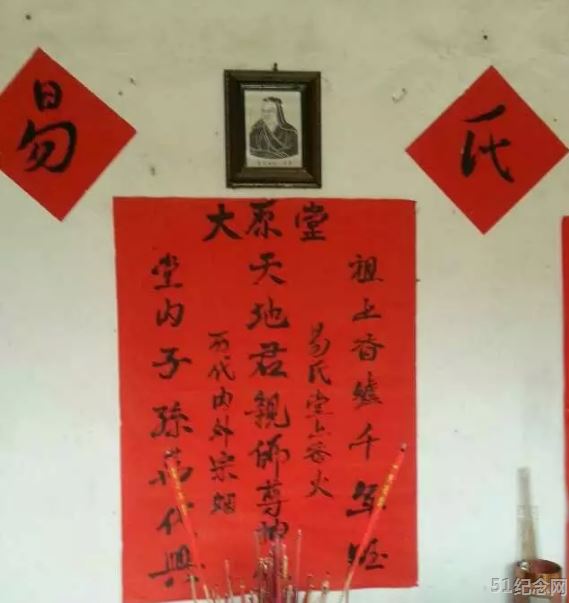 易
氏
大原堂
祖上香千年
易氏堂上香火
天地君親師尊
历代内外宗姻
堂内子孫萬代興
51纪念网